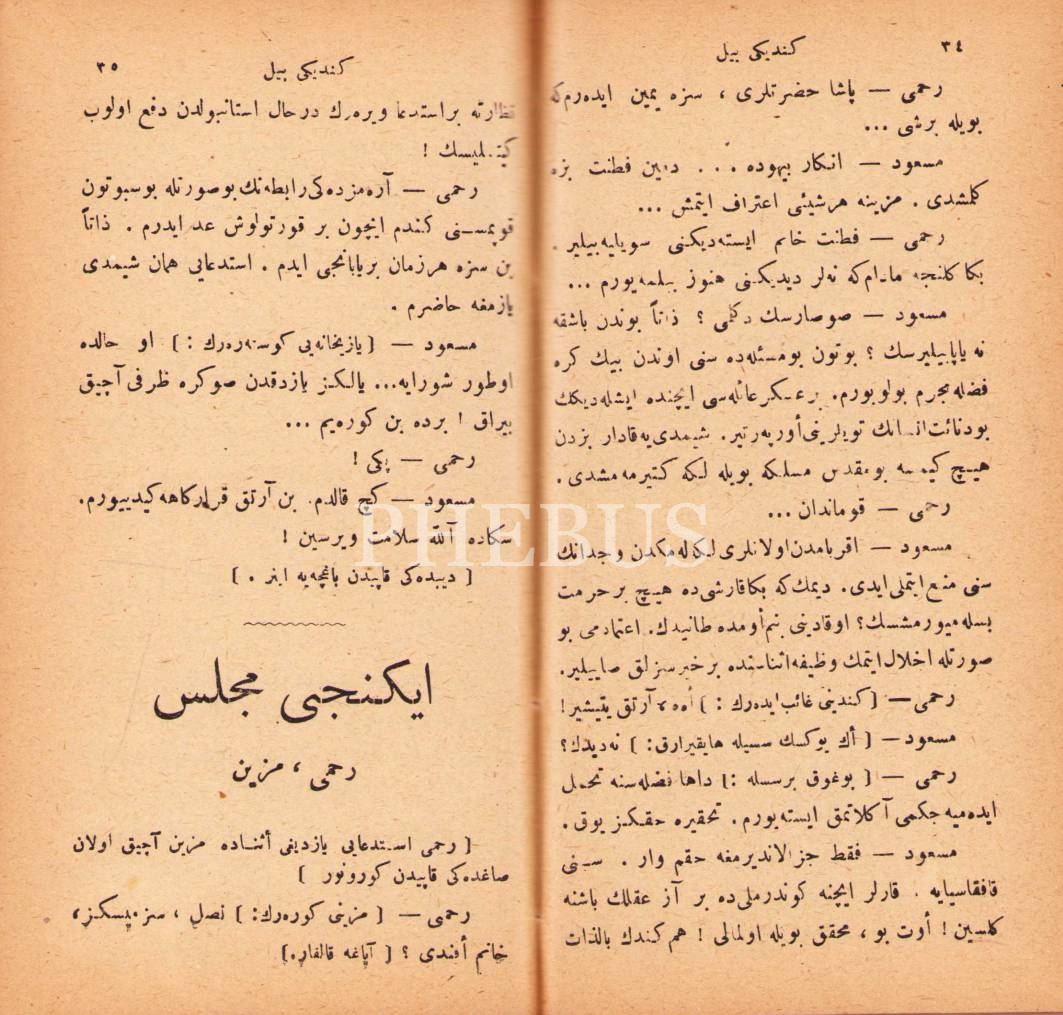 ٣٤
كنديكى بيل
رحمى — پاشا حضرتلرى ، سزه يمين ايده‌رم كه
بويله برشى ...
مسعود — انكار بيهوده . . . دمين فطنت بزه
كلمشدى . مزينه هرشيئى اعتراف ايتمش ...
رحمى — فطنت خانم ايسته‌ديكنى سويليه‌بيلير .
بكا كلنجه مادام كه نه‌لر ديديكنى هنوز بيلمه‌يورم ...
مسعود — صوصارسك دكلمى ؟ ذاتاً بوندن باشقه
نه ياپابيليرسك ؟ بوتون بومسئله‌ده سنى اوندن بيك كره
فضله مجرم بولويورم. بر عسكر عائله‌سى ايچنده ايشله‌ديكك
بودنائت انسانك تويلرينى أورپه‌رتير. شيمدى‌يه قادار بزدن
هيچ كيمسه بومقدس مسلكه بويله لكه كتيرمه‌مشدى .
رحمى — قوماندان ...
مسعود — اقربامدن اولانلرى ليكه‌له‌مكدن وجدانك
سنى منع ايتملى ايدى. ديمك كه بكا قارشى‌ده هيچ بر حرمت
بسله‌ميورمشسك؟ اوقادينى بنم أومده طانيدك. اعتمادمى بو
صورتله اخلال ايتمك وظيفه اثناسنده بر خبرسزلق صاييلير.
رحمى — [ كندينى غائب ايده‌رك : ] أوه ، آرتق يتيشير!
مسعود — [ أك يوكسك سسيله هايقيرارق: ] نه‌ديدك؟
رحمى — [ بوغوق برسسله :] داها فضله‌سنه تحمل
ايده‌ميه‌جكمى آكلاتمق ايسته‌يورم. تحقيره حقكز يوق.
مسعود — فقط جزالانديرمغه حقم وار . سنى
قافقاسيايه . قارلر ايچنه كوندرملى‌ده بر آز عقلك باشنه
كلسين ! أوت بو ، محقق بويله اولمالى ! هم كندك بالذات
٣٥
كنديكى بيل
نظارته براستدعا ويره‌رك درحال استانبولدن دفع اولوب
كيتمليسك !
رحمى — آره‌مزده‌كى رابطه‌نك بوصورتله بوسبوتون
قوپمسنى كندم ايچون بر قورتولوش عد ايدرم . ذاتاً
بن سزه هرزمان بريابانجى ايدم . استدعايى همان شيمدى
يازمغه حاضرم .
مسعود — [ يازيخانه‌يى كوستره‌رك : ] او حالده
اوطور شورايه... يالكز يازدقدن صوكره ظرفى آچيق
بيراق ! برده بن كوره‌يم ...
رحمى — پكى !
مسعود — كچ قالدم. بن آرتق قراركاهه كيدييورم.
سكاده آلله سلامت ويرسين !
[ ديبده‌كى قاپيدن باغچه‌يه اينر . ]
ايكنجى مجلس
رحمى ، مزين
[ رحمى استدعايى يازديغى أثناده مزين آچيق اولان
صاغده‌كى قاپيدن كورونور ]
رحمى — [ مزينى كوره‌رك: ] نصل ، سزميسكز ،
خانم أفندى ؟ [ آياغه قالقار.]
PHEBUS